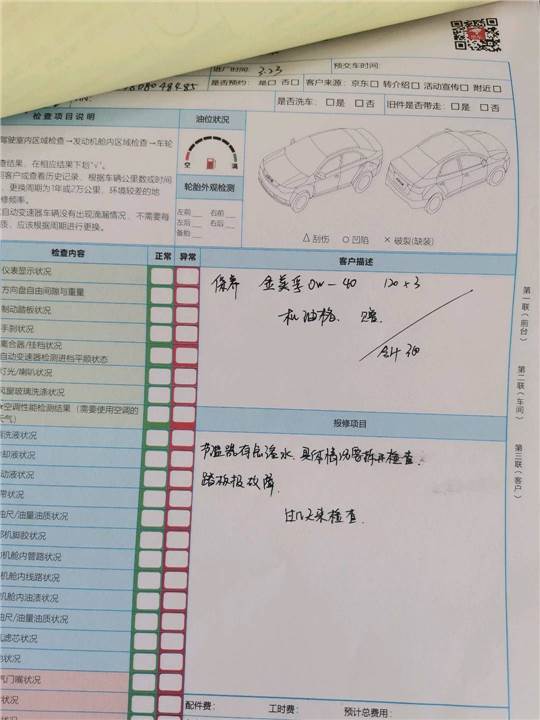 进厂时间: 3.23 预交车时间:
是否预约: 是 否 客户来源: 京东 转介绍 活动宣传 附近
是否洗车: 是 否 旧件是否带走: 是 否
检查项目说明
油位状况
驾驶室内区域检查→发动机舱内区域检查→车轮
空 满
查结果,在相应结果下划"√"。
问客户或查看历史记录,根据车辆公里数或时间
,更换周期为1年或2万公里,环境较差的地
修频率。
轮胎外观检测
自动变速器车辆没有出现滴漏情况,不需要每
质,应该根据周期进行更换。
左前 右前
左后 右后
备胎
△ 刮伤 ○ 凹陷 × 破裂(缺装)
检查内容 正常 异常 客户描述
仪表显示状况
方向盘自由间隙与重量
制动踏板状况
手刹状况
离合器/挂档状况
自动变速器检测进档平顺状态
灯光/喇叭状况
风窗玻璃洗涤状况
空调性能检测结果(需要使用空调的
天气)
洗液状况
却液状况
动液状况
带状况
油尺/油量油质状况
机脚胶状况
机舱内管路状况
机舱内线路状况
机舱内油渍状况
油尺/油量油质状况
滤芯状况
状况
门嘴状况
状况
状况
保养 金美孚 0W-40 120×3
机油格
报修项目
节温器有点渗水,具体情况需拆开检查.
踏板报故障
来检查.
配件费: 工时费: 预计总费用:
第一联(前台)
第二联(车间)
第三联(客户)